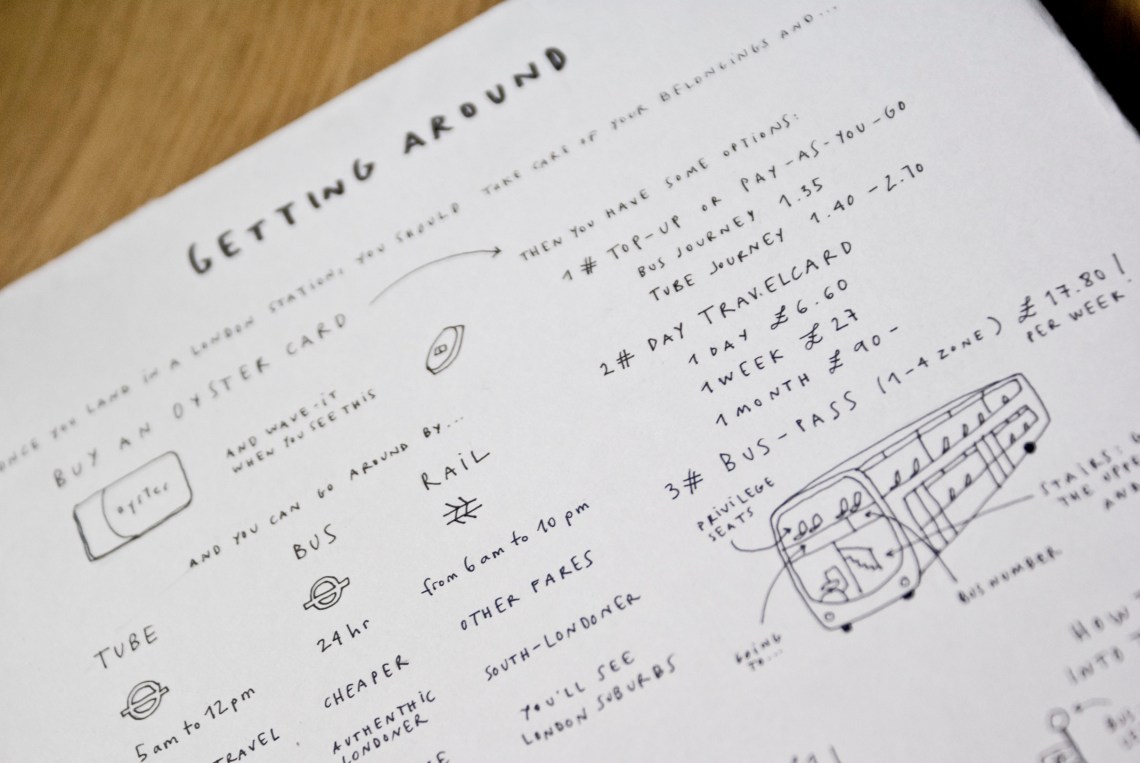 GETTING AROUND
ONCE YOU LAND IN A LONDON STATION, YOU SHOULD TAKE CARE OF YOUR BELONGINGS AND...
BUY AN OYSTER CARD
oyster
AND WAVE-IT
WHEN YOU SEE THIS
THEN YOU HAVE SOME OPTIONS:
1# TOP-UP OR PAY-AS-YOU-GO
BUS JOURNEY 1.35
TUBE JOURNEY 1.40 - 2.70
2# DAY TRAVELCARD
1 DAY £6.60
1 WEEK £27
1 MONTH £90-
3# BUS-PASS (1-4 ZONE) £17.80!
PER WEEK!
AND YOU CAN GO AROUND BY...
TUBE
5am to 12pm
TRAVEL
BUS
24hr
CHEAPER
AUTHENTHIC
LONDONER
RAIL
from 6am to 10pm
OTHER FARES
SOUTH-LONDONER
YOU'LL SEE
LONDON SUBURBS
PRIVILEGE
SEATS
GOING
TO...
BUS NUMBER
STAIRS:
THE UPPE
AND
HOW
INTO
BUS